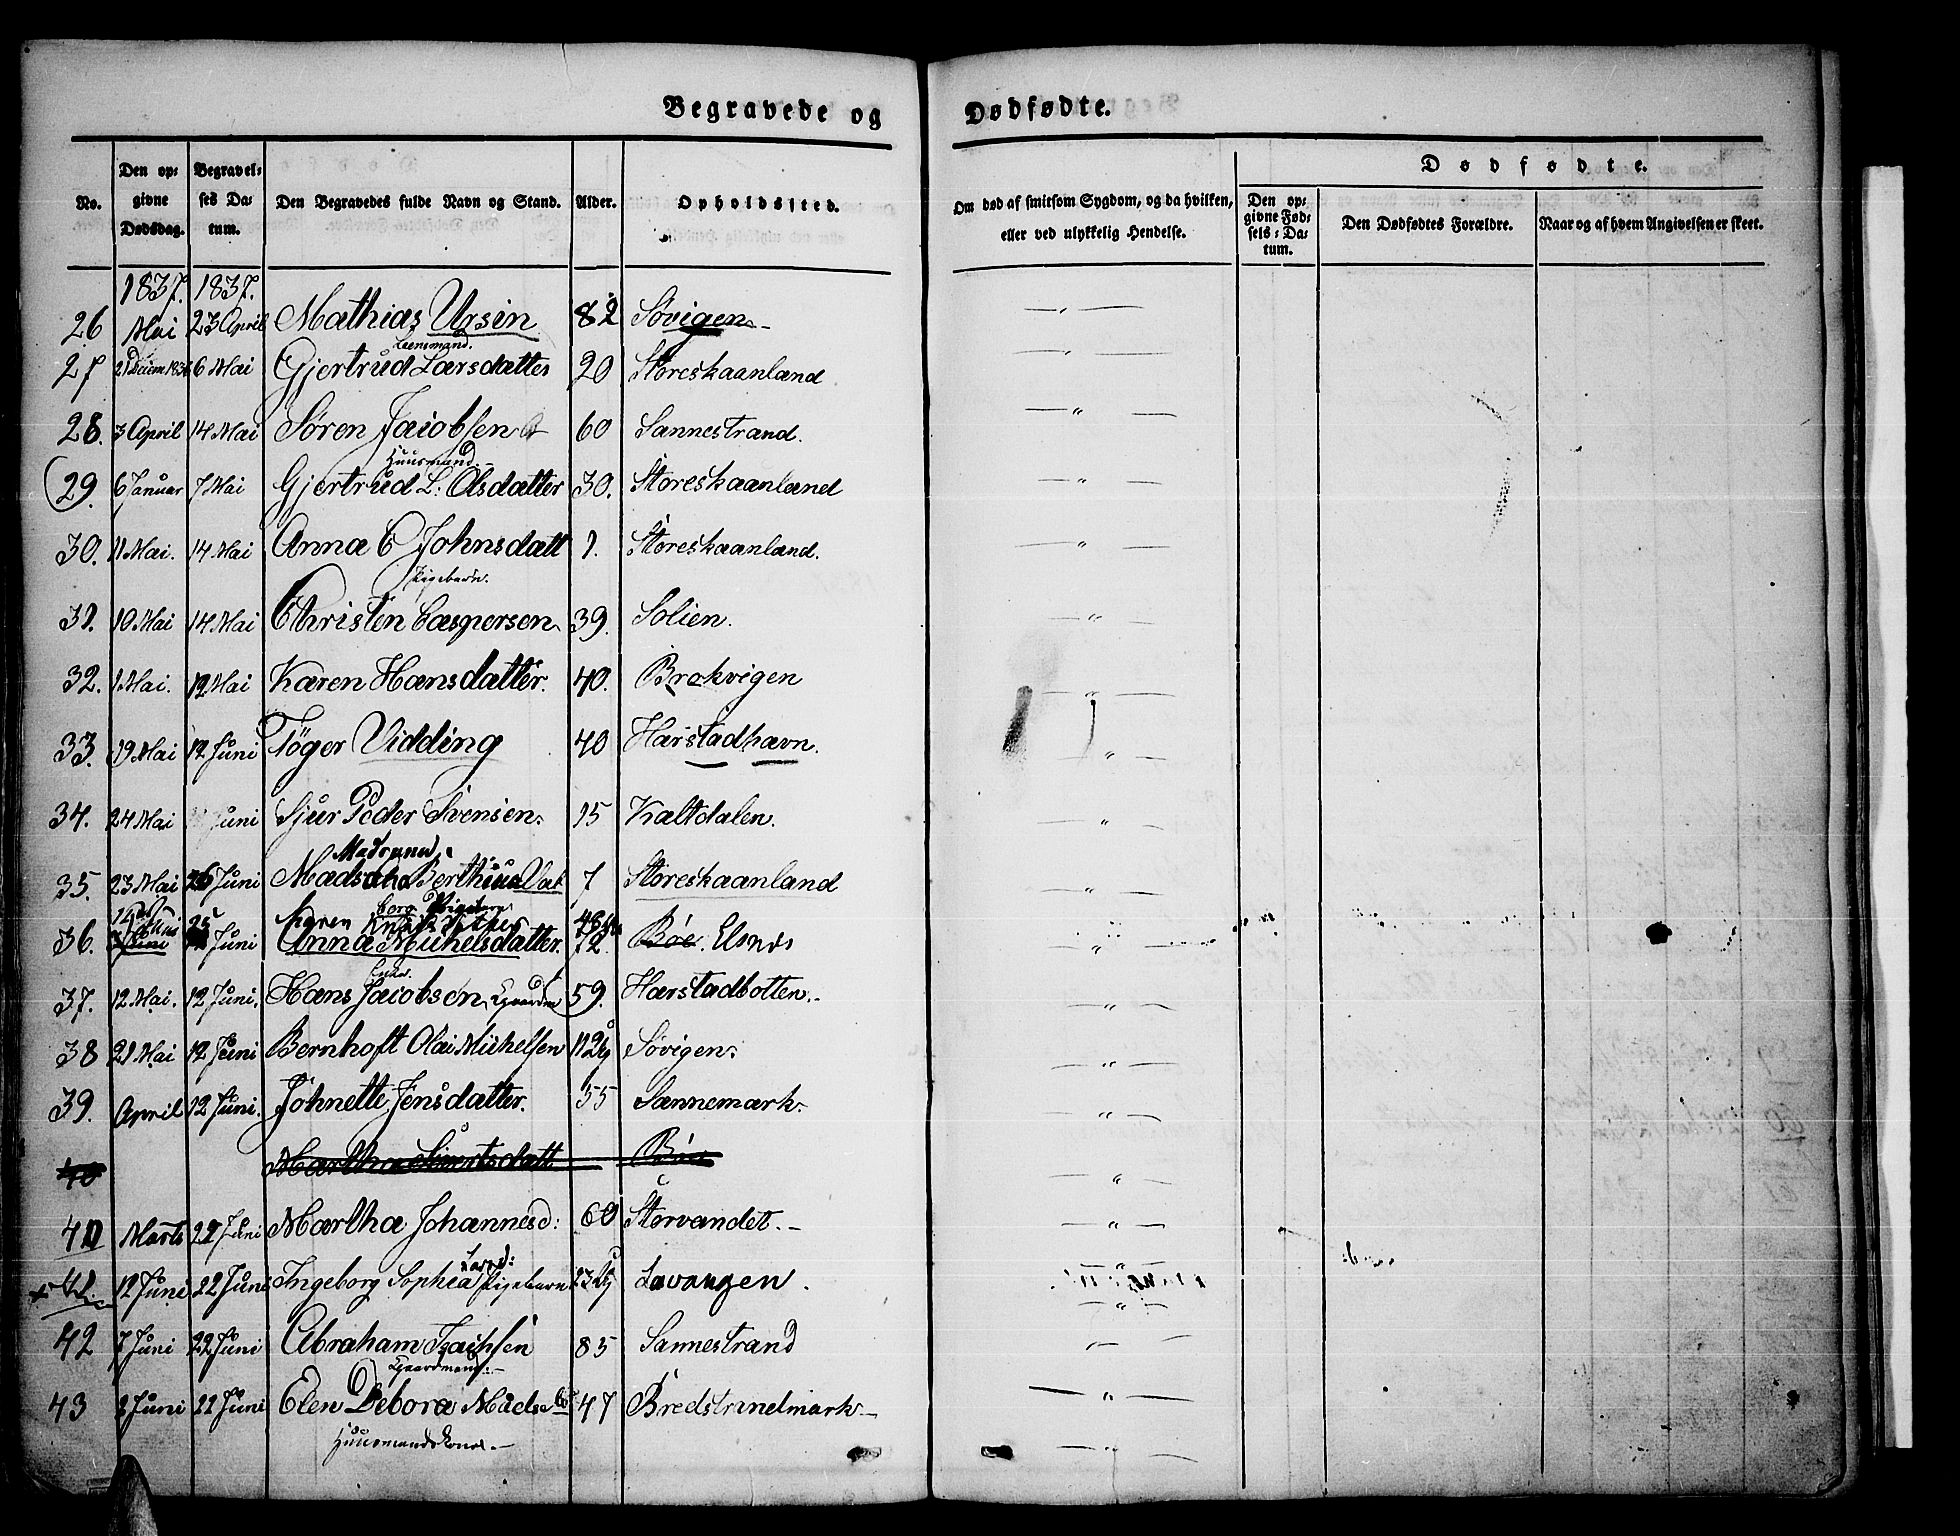 Begravede og Dødfødte.
Dødfødte.
No. Den opgivne Dødsdag. Begravelses Datum. Den Begravedes fulde Navn og Stand. Alder. Opholdssted. Om død af smitsom Sygdom, og da hvilken, eller ved ulykkelig Hendelse. Den opgivne Fødsels-Datum. Den Dødfødtes Forældre. Naar og af hvem Angivelsen er skeet.
1837. 1837.
26 Mai 23 April Mathias Ursin 82 Søvigen
Leensmand.
27 21 Decem 1836 6 Mai Gjertrud Larsdatter 20 Storeskaanland
28. 3 April 14 Mai Søren Jacobsen 60 Sannestrand.
Huusmand.
29. 6 Januar 7 Mai Gjertrud L: Olsdatter 30. Storeskaanland
30. 11 Mai. 14 Mai Anna C Johnsdatt 1. Storeskaanland.
Pigebarn.
31. 10 Mai 14 Mai Christen Caspersen 39. Solien.
32. 1 Mai. 12 Mai Karen Hansdatter. 40. Brokvigen
33. 19 Mai 12 Juni Töger Vidding 40 Harstadhavn.
34. 24 Mai Juni Sjur Peder Svensen. 15 Kaltdalen.
35. 23 Mai 26 Juni Madscha Berthina 7 Storeskaanland
Karen
36. Juni Juni Anna Michelsdatter. 72. Bøe. Elsnes
Enke.
37. 12 Mai. 12 Juni. Hans Jacobsen, Gaardm 59. Harstadbotten.
38 21 Mai 12 Juni Bernhoft Olai Michelsen 12 Søvigen.
39. April 12 Juni. Johnette Jensdatter. 55 Sannemark.
40 Martha Sivertsdatt Bøe
40 Marts 22 Juni Martha Johannesd: 60 Storvandet.
Larsd:
41. 12 Juni 22 Juni Ingeborg Sophia Pigebarn Lavangen.
42 7 Juni 22 Juni Abraham Isachsen 85 Sannestrand
Gaardmand.
43 2 Juni 22 Juni Elen Debora Madsd 47 Bredstrandmark
Huusmandskone.